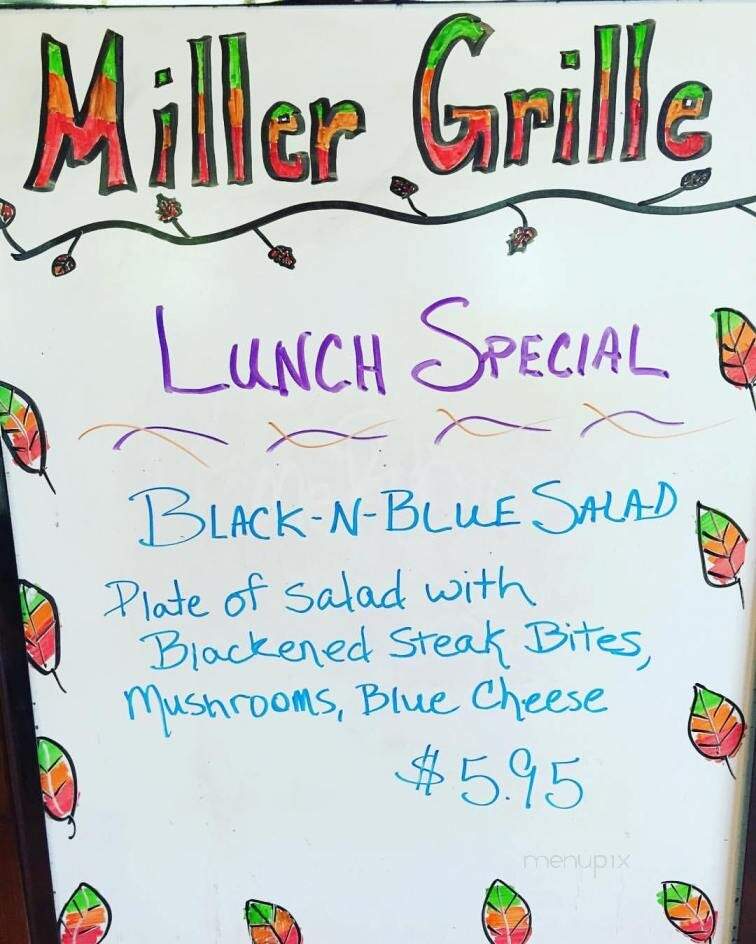 Miller Grille
LUNCH SPECIAL
BLACK-N-BLUE SALAD
Plate of salad with
Blackened Steak Bites,
Mushrooms, Blue Cheese
$5.95
menupix